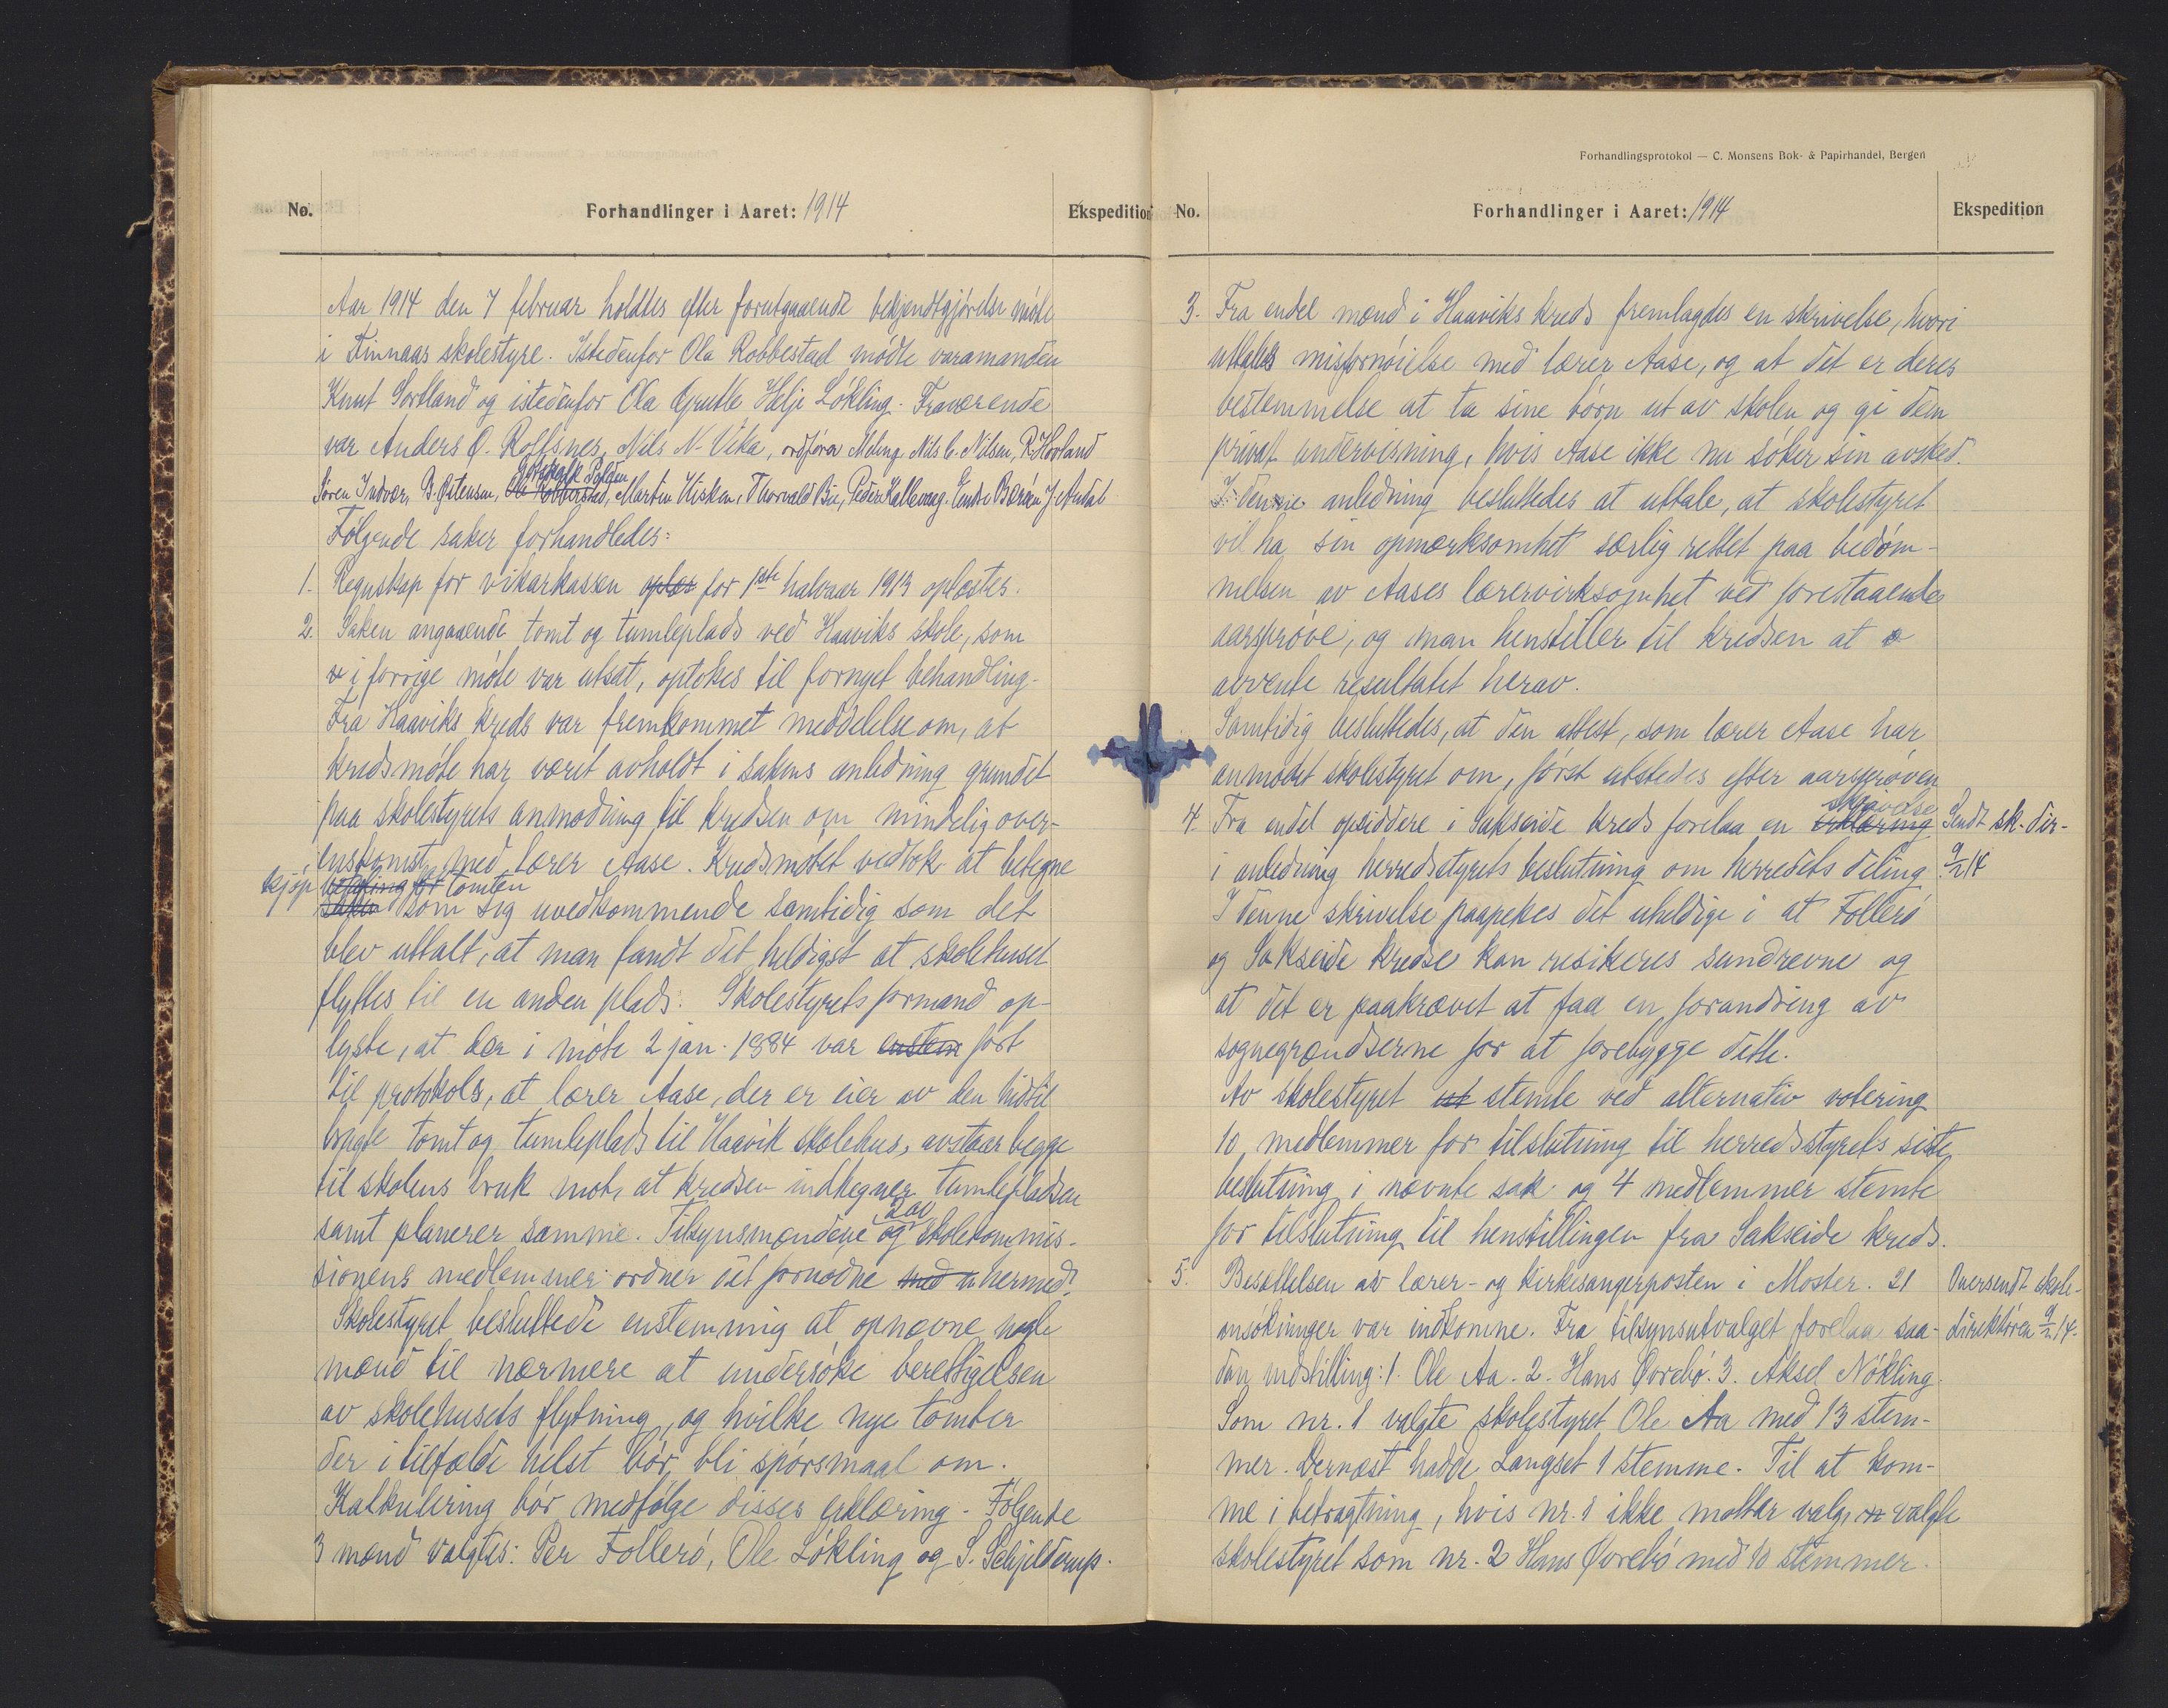 No.
Forhandlinger i Aaret: 1914
Ekspedition
Aar 1914 den 7 februar holdtes efter forutgaaende bekjendtgjørelse møte
i Finnaas skolestyre. Istedenfor Ola Robbestad mødte varamanden
Knut Sortland og istedenfor Ola Grutle Helje Løkling. Fraværende
var Anders O. Rolfsnes, Nils N. Vika, ordfører Meling Nils C. Nilsen, R. Hovland
Gotskalk
Søren Indvær, B. Østensen, Ola Robbestad, Martin Hisken, Thorvald Bie, Peder Kallevaag. Endre
Følgende saker forhandledes:
1. Regnskap for vikarkassen oplæs for 1ste halvaar 1913 oplæstes.
2. Saken angaaende tomt og tumleplads ved Haaviks skole, som
i forrige møte var utsat, optokes til fornyet behandling.
Fra Haaviks kreds var fremkommet meddelelse om, at
kredsmøte har været avholdt i sakens anledning grundet
paa skolestyrets anmodning til kredsen om mindelig over-
enskomst med lærer Aase. Kredsmøtet vedtok at betegne
kjøp av tomten
som sig uvedkommende samtidig som det
blev uttalt, at man fandt det heldigst at skolehuset
flyttes til en anden plads. Skolestyrets formand op-
lyste, at der i møte 2 jan. 1884 var enstem ført
til protokols, at lærer Aase, der er eier av den hidtil
brugte tomt og tumleplads til Haavik skolehus, avstaar begge
til skolens bruk mot, at kredsen indhegner tumlepladsen
samt planerer samme. Tilsynsmændene og skolekommis-
sionens medlemmer ordner det fornødne med hermed.
Skolestyret besluttede enstemmig at opnævne nogle
mænd til nærmere at undersøke berettigelsen
av skolehusets flytning, og hvilke nye tomter
der i tilfælde helst bør bli spørsmaal om.
Kalkulering bør medfølge disses erklæring. Følgende
3 mænd valgtes: Per Follerø, Ole Løkling og S. Schjelderup.
Forhandlingsprotokol — C. Monsens Bok- & Papirhandel, Bergen
No.
Forhandlinger i Aaret: 1914
Ekspedition
3. Fra endel mænd i Haaviks kreds fremlagdes en skrivelse, hvori
uttales misfornøielse med lærer Aase, og at det er deres
bestemmelse at ta sine børn ut av skolen og gi dem
privat undervisning, hvis Aase ikke nu søker sin avsked.
I denne anledning besluttedes at uttale, at skolestyret
vil ha sin opmerksomhet særlig rettet paa bedøm-
melsen av Aases lærervirksomhet ved forestaaende
aarsprøve, og man henstiller til kredsen at
avvente resultatet herav.
Samtidig besluttedes, at den attest, som lærer Aase har
anmodet skolestyret om, først utstedes efter aarsprøven
skrivelse
4. Fra endel opsiddere i Sakseide kreds forelaa en erklæring
Sendt sk. dir-
i anledning herredsstyrets beslutning om herredets deling.
9/2 14
I denne skrivelse paapekes det uheldige i at Follerø
og Sakseide kredse kan risikeres sundrevne og
at det er paakrævet at faa en forandring av
sognegrændserne for at forebygge dette.
Av skolestyret ut stemte ved alternativ votering
10 medlemmer for tilslutning til herredsstyrets siste
beslutning i nævnte sak og 4 medlemmer stemte
for tilslutning til henstillingen fra Sakseide kreds.
5. Besættelsen av lærer- og kirkesangerposten i Moster. 21
Oversendt skole-
ansøkninger var indkomne. Fra tilsynsutvalget forelaa saa-
direktøren 9/2 14.
dan indstilling: 1. Ole Aa. 2. Hans Øvrebø. 3. Aksel Nøkling.
Som nr. 1 valgte skolestyret Ole Aa med 13 stem-
mer. Dernæst hadde Langset 1 stemme. Til at kom-
me i betragtning, hvis nr. 1 ikke mottar valg, valgte
skolestyret som nr. 2 Hans Øvrebø med 10 stemmer.